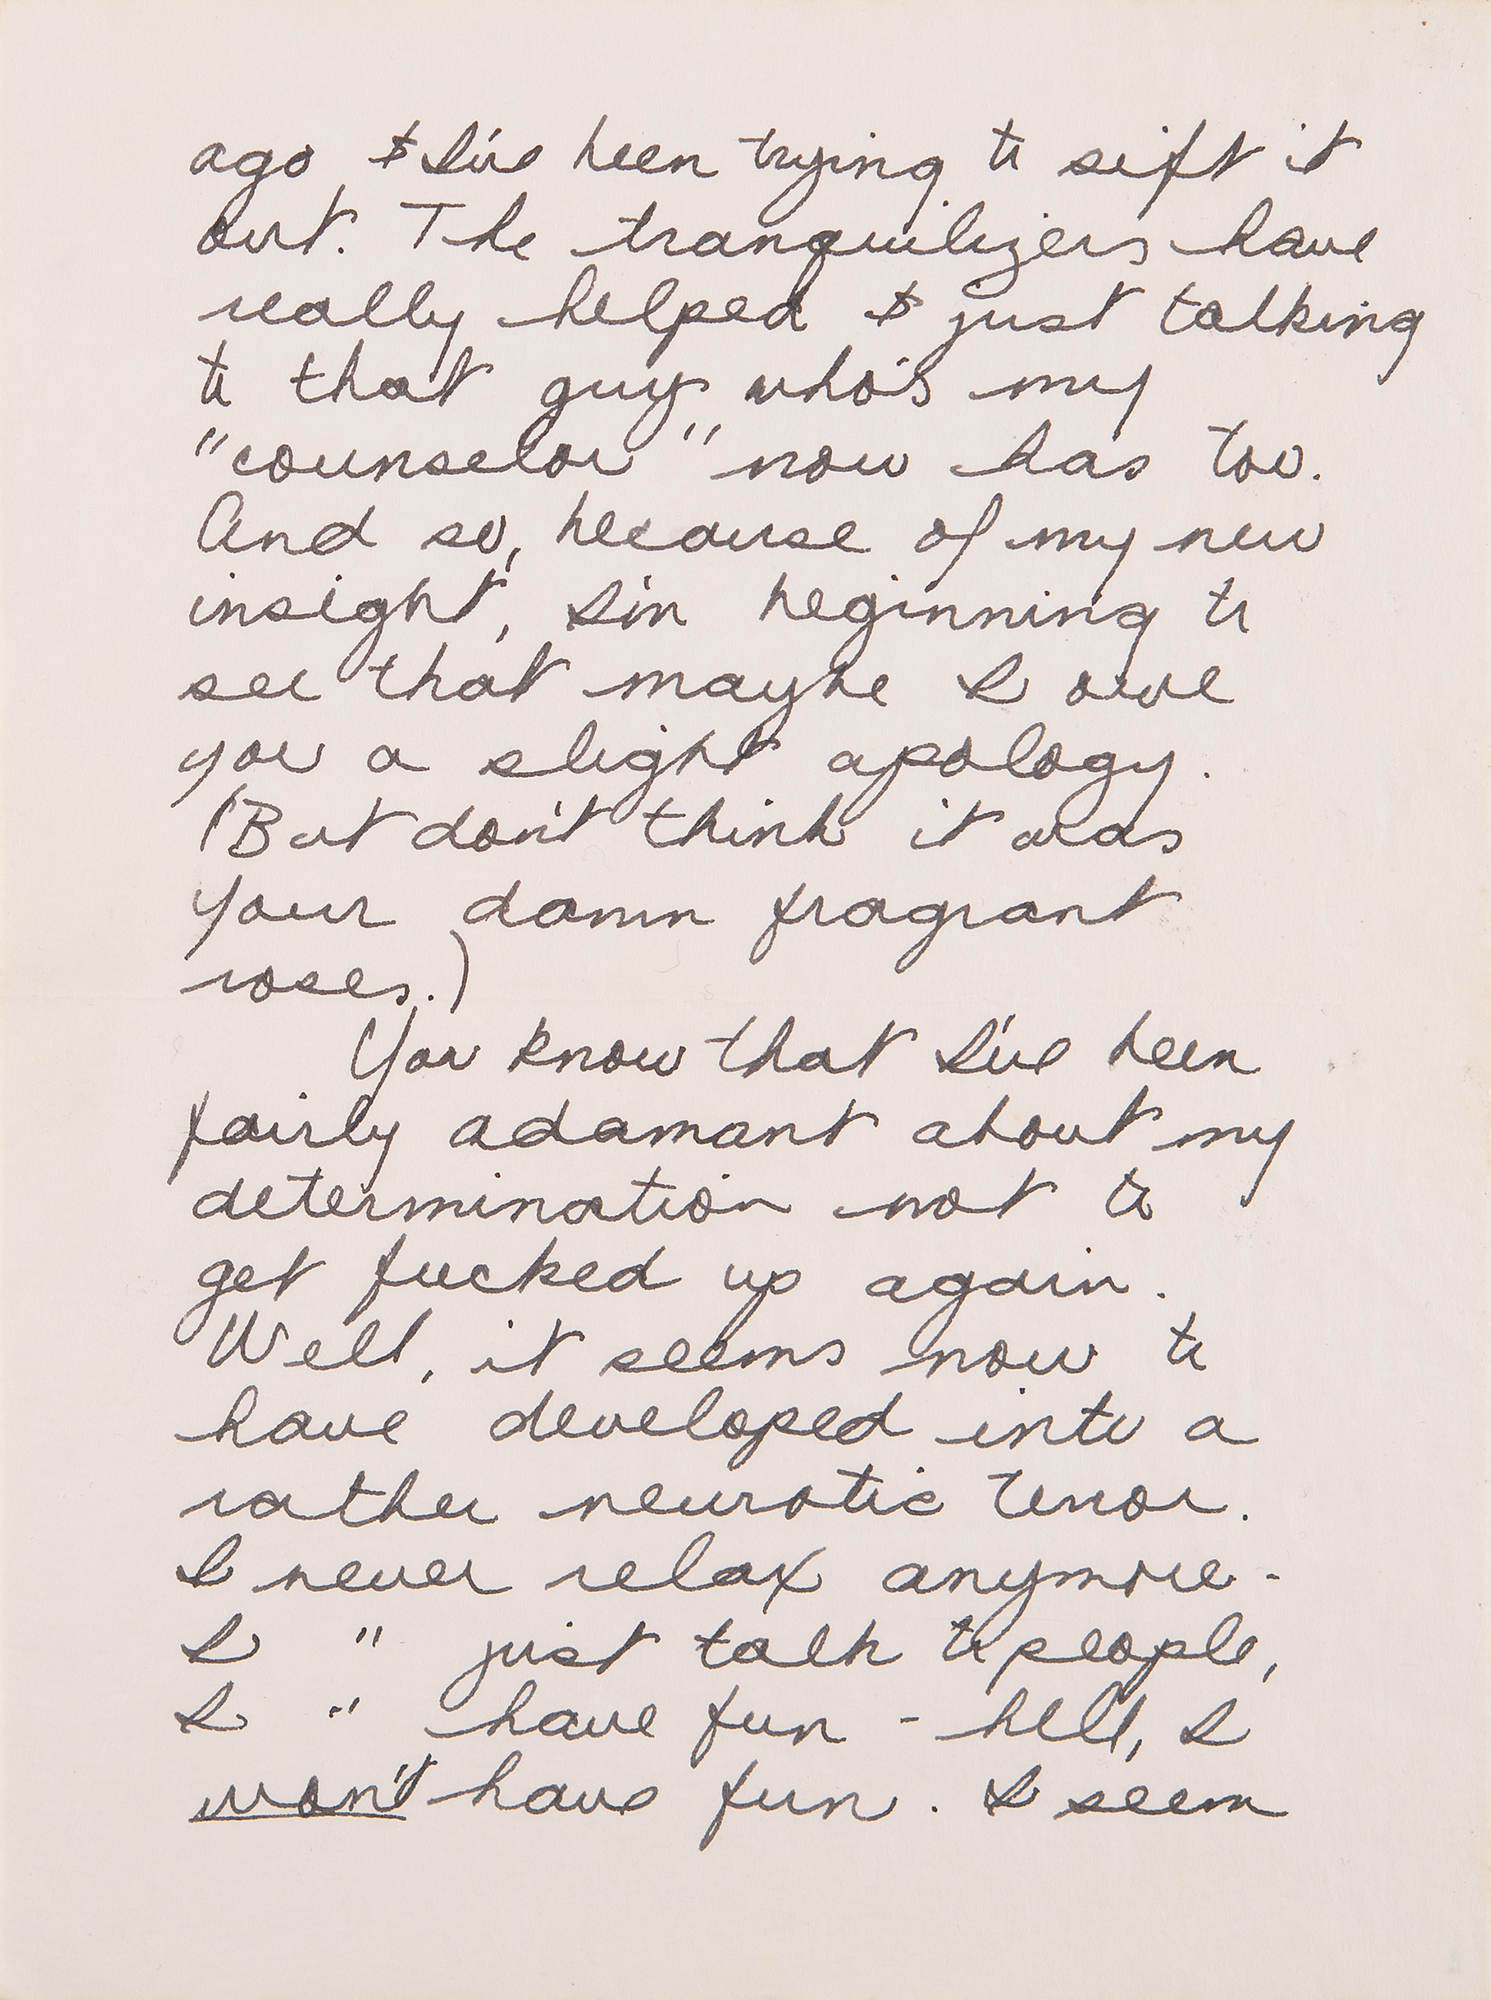 ago, & I've been trying to sift it
out. The tranquilizers have
really helped & just talking
to that guy who's my
"counselor" now has too.
And so, because of my new
insight, I'm beginning to
see that maybe I owe
you a slight apology.
(But don't think it was
your damn fragrant
roses.)
You know that I've been
fairly adamant about my
determination not to
get fucked up again.
Well, it seems now to
have developed into a
rather neurotic tenor.
I never relax anymore -
I " just talk to people,
I " have fun - hell, I
won't have fun. I seem